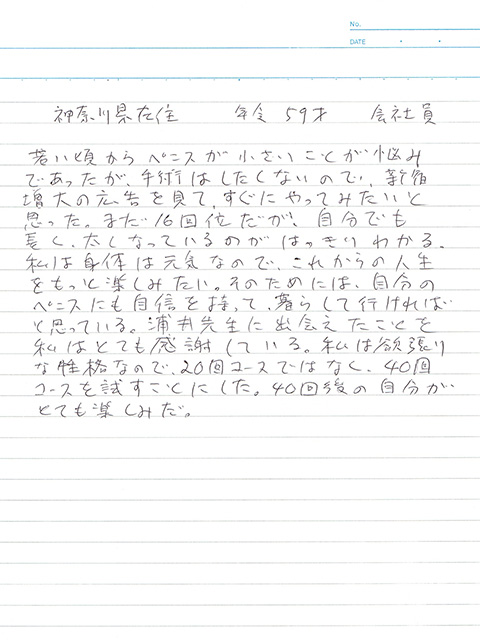 No.
DATE
神奈川県在住 年令 59才 会社員
若い頃からペニスが小さいことが悩み
であったが、手術はしたくないので、新宿
増大の広告を見て、すぐにやってみたいと
思った。まだ16回位だが、自分でも
長く、太くなっているのがはっきりわかる。
私は身体は元気なので、これからの人生
をもっと楽しみたい。そのためには、自分の
ペニスにも自信を持って、暮らして行ければ
と思っている。浦井先生に出会えたことを
私はとても感謝している。私は欲張り
な性格なので、20回コースではなく、40回
コースを試すことにした。40回後の自分が
とても楽しみだ。